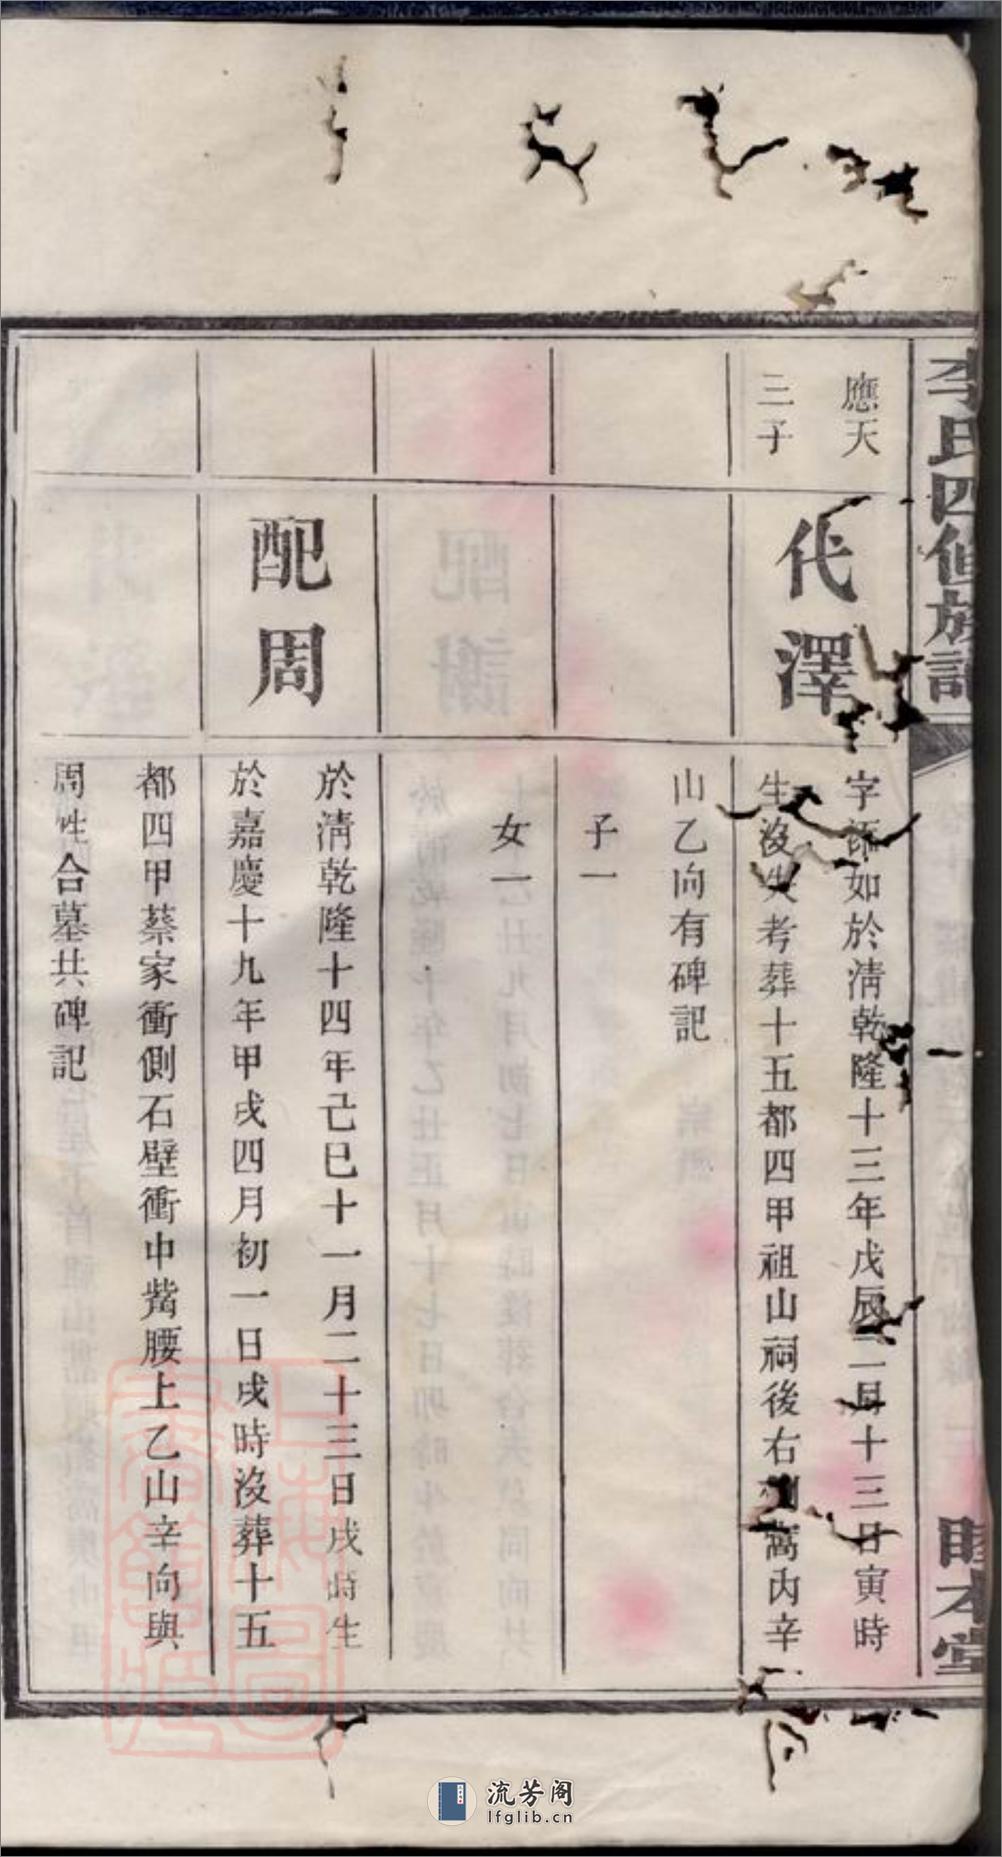 李氏四修族譜
睦本堂
應天
三子
代澤
字師如於淸乾隆十三年戊辰二月十三日寅時
生沒失考葬十五都四甲祖山祠後右側窩內辛
山乙向有碑記
子一
女一
配周
於淸乾隆十四年己巳十一月二十三日戌時生
於嘉慶十九年甲戌四月初一日戌時沒葬十五
都四甲蔡家衝側石壁衝中觜腰上乙山辛向與
周姓合墓共碑記
上海圖書館藏
流芳阁
lfglib.cn